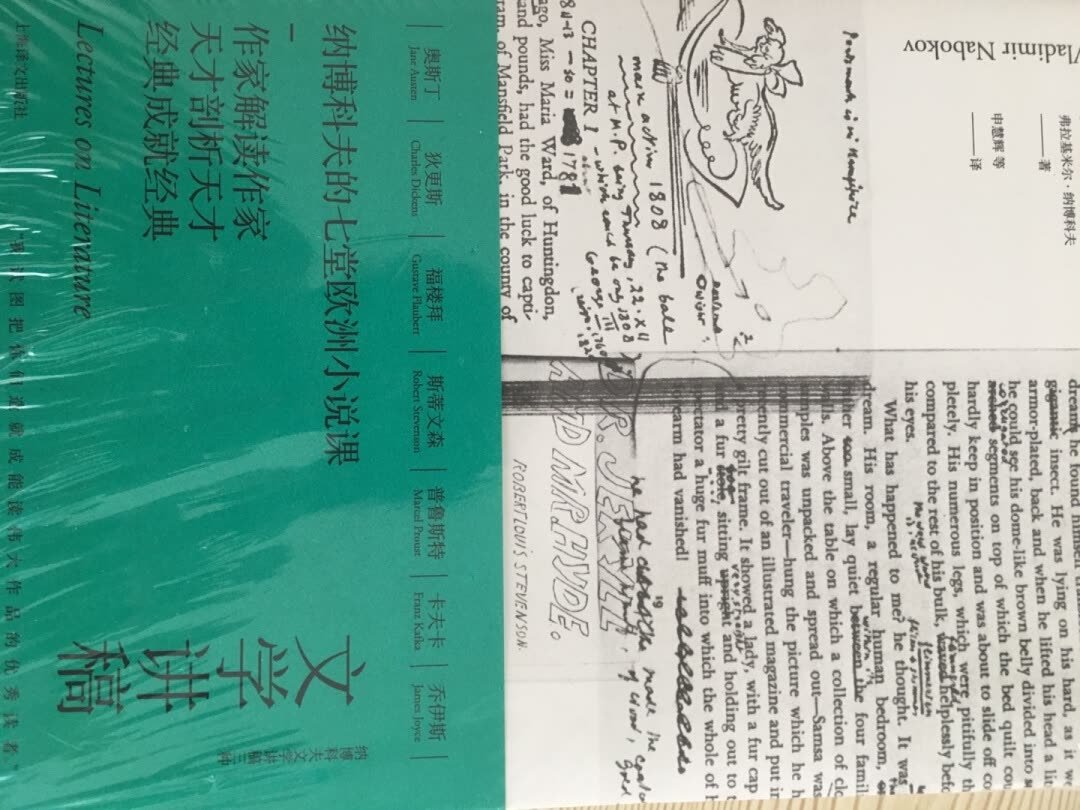 Vladimir Nabokov
弗拉基米尔·纳博科夫
——著
申慧辉 等
——译
Postmark is in Hampshire
CHAPTER I
mark action 1808 (the ball
at M.P. being Thursday, 22.XII
1781
ago, Miss Maria Ward, of Huntingdon,
and pounds, had the good luck to capti-
ram, of Mansfield Park, in the county of
dreams he found himself
gigantic insect. He was lying on his hard, as it we
armor-plated, back and when he lifted his head a lit
he could see his dome-like brown belly divided into
segments on top of which the bed quilt cou
hardly keep in position and was about to slide off co
pletely. His numerous legs, which were pitifully th
compared to the rest of his bulk, helplessly befo
his eyes.
What has happened to me? he thought. It was
dream. His room, a regular human bedroom,
small, lay quiet between the four famil
walls. Above the table on which a collection of clo
samples was unpacked and spread out—Samsa was
commercial traveler—hung the picture which he h
recently cut out of an illustrated magazine and put in
pretty gilt frame. It showed a lady, with a fur cap
a fur sitting upright and holding out to t
spectator a huge fur muff into which the whole of h
earm had vanished!
DR. JEKYLL
AND MR. HYDE.
ROBERT LOUIS STEVENSON.
奥斯丁
Jane Austen
狄更斯
Charles Dickens
福楼拜
Gustave Flaubert
斯蒂文森
Robert Stevenson
普鲁斯特
Marcel Proust
卡夫卡
Franz Kafka
乔伊斯
James Joyce
纳博科夫的七堂欧洲小说课
—
作家解读作家
天才剖析天才
经典成就经典
Lectures on Literature
文学讲稿
纳博科夫文学讲稿三种
上海译文出版社
"我试图把你们造就成能读伟大作品的优秀读者。"